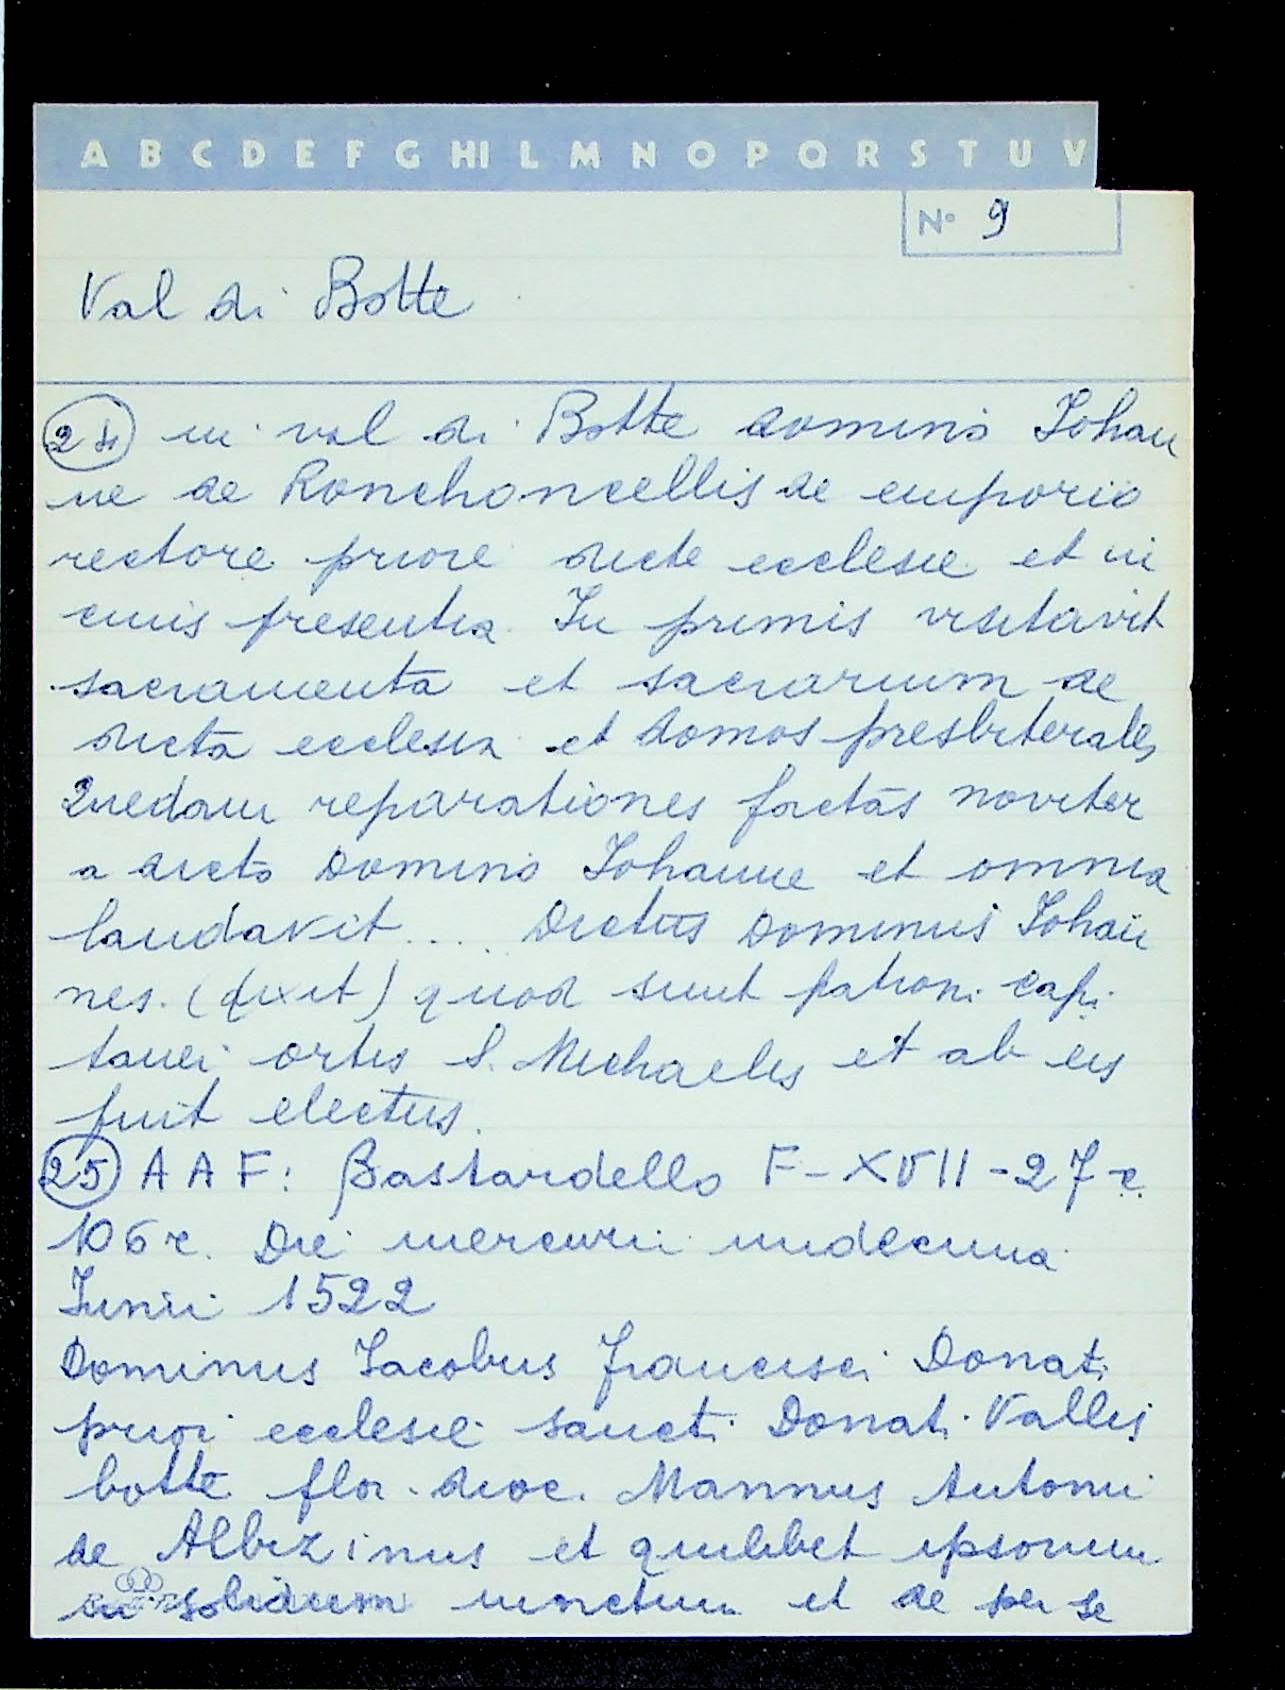 A B C D E F G HI L M N O P Q R S T U V
N° 9
Val di Botte
24 in val di Botte domino Johan
ne de Ronchoncellis de emporio
rectore priore dicte ecclesie et in
cuius presentia In primis visitavit
sacramenta et sacrarium de
dicta ecclesia et domos presbiterales
Quedam reparationes factas noviter
a dicto Domino Johanne et omnia
laudavit.... Dictus Dominus Johan
nes. (dixit) quod sunt patroni capi
tanei ortis S. Michaelis et ab eis
fuit electus.
25 AAF: Bastardello F-XVII-27-c.
106 r. Die mercurii undecima
Junii 1522
Dominus Jacobus Francisci Donati
priori ecclesie sancti Donati Vallis
botte flor. dioc. Mannus Antonii
de Albizinus et quilibet ipsorum
in solidum iunctim et de per se